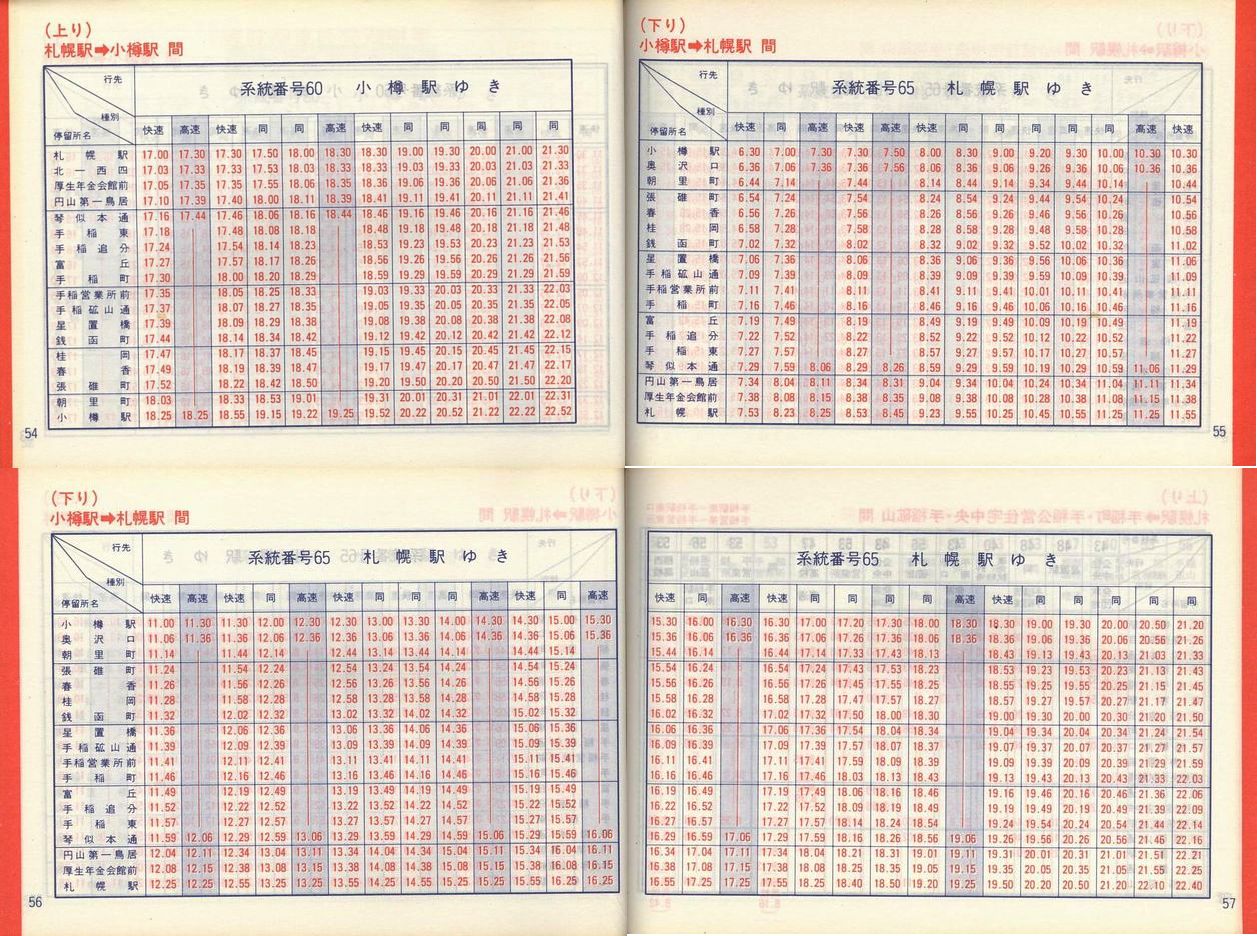 （上り）
札幌駅➡小樽駅 間
行先 系統番号60 小樽駅ゆき
種別
停留所名 快速 高速 快速 同 同 高速 快速 同 同 同 同 同
札幌駅 17.00 17.30 17.30 17.50 18.00 18.30 18.30 19.00 19.30 20.00 21.00 21.30
北一西四 17.03 17.33 17.33 17.53 18.03 18.33 18.33 19.03 19.33 20.03 21.03 21.33
厚生年金会館前 17.05 17.35 17.35 17.55 18.06 18.35 18.36 19.06 19.36 20.06 21.06 21.36
円山第一鳥居 17.10 17.39 17.40 18.00 18.11 18.39 18.41 19.11 19.41 20.11 21.11 21.41
琴似本通 17.16 17.44 17.46 18.06 18.16 18.44 18.46 19.16 19.46 20.16 21.16 21.46
手稲東 17.18 17.48 18.08 18.18 18.48 19.18 19.48 20.18 21.18 21.48
手稲追分 17.24 17.54 18.14 18.23 18.53 19.23 19.53 20.23 21.23 21.53
富丘 17.27 17.57 18.17 18.26 18.56 19.26 19.56 20.26 21.26 21.56
手稲町 17.30 18.00 18.20 18.29 18.59 19.29 19.59 20.29 21.29 21.59
手稲営業所前 17.35 18.05 18.25 18.33 19.03 19.33 20.03 20.33 21.33 22.03
手稲砿山通 17.37 18.07 18.27 18.35 19.05 19.35 20.05 20.35 21.35 22.05
星置橋 17.39 18.09 18.29 18.38 19.08 19.38 20.08 20.38 21.38 22.08
銭函町 17.44 18.14 18.34 18.42 19.12 19.42 20.12 20.42 21.42 22.12
桂岡 17.47 18.17 18.37 18.45 19.15 19.45 20.15 20.45 21.45 22.15
春香 17.49 18.19 18.39 18.47 19.17 19.47 20.17 20.47 21.47 22.17
張碓町 17.52 18.22 18.42 18.50 19.20 19.50 20.20 20.50 21.50 22.20
朝里町 18.03 18.33 18.53 19.01 19.31 20.01 20.31 21.01 22.01 22.31
小樽駅 18.25 18.25 18.55 19.15 19.22 19.25 19.52 20.22 20.52 21.22 22.22 22.52
54
（下り）
小樽駅➡札幌駅 間
行先 系統番号65 札幌駅ゆき
種別
停留所名 快速 同 高速 快速 高速 快速 同 同 同 同 同 高速 快速
小樽駅 6.30 7.00 7.30 7.30 7.50 8.00 8.30 9.00 9.20 9.30 10.00 10.30 10.30
奥沢口 6.36 7.06 7.36 7.36 7.56 8.06 8.36 9.06 9.26 9.36 10.06 10.36 10.36
朝里町 6.44 7.14 7.44 8.14 8.44 9.14 9.34 9.44 10.14 10.44
張碓町 6.54 7.24 7.54 8.24 8.54 9.24 9.44 9.54 10.24 10.54
春香 6.56 7.26 7.56 8.26 8.56 9.26 9.46 9.56 10.26 10.56
桂岡 6.58 7.28 7.58 8.28 8.58 9.28 9.48 9.58 10.28 10.58
銭函町 7.02 7.32 8.02 8.32 9.02 9.32 9.52 10.02 10.32 11.02
星置橋 7.06 7.36 8.06 8.36 9.06 9.36 9.56 10.06 10.36 11.06
手稲砿山通 7.09 7.39 8.09 8.39 9.09 9.39 9.59 10.09 10.39 11.09
手稲営業所前 7.11 7.41 8.11 8.41 9.11 9.41 10.01 10.11 10.41 11.11
手稲町 7.16 7.46 8.16 8.46 9.16 9.46 10.06 10.16 10.46 11.16
富丘 7.19 7.49 8.19 8.49 9.19 9.49 10.09 10.19 10.49 11.19
手稲追分 7.22 7.52 8.22 8.52 9.22 9.52 10.12 10.22 10.52 11.22
手稲東 7.27 7.57 8.27 8.57 9.27 9.57 10.17 10.27 10.57 11.27
琴似本通 7.29 7.59 8.06 8.29 8.26 8.59 9.29 9.59 10.19 10.29 10.59 11.06 11.29
円山第一鳥居 7.34 8.04 8.11 8.34 8.31 9.04 9.34 10.04 10.24 10.34 11.04 11.11 11.34
厚生年金会館前 7.38 8.08 8.15 8.38 8.35 9.08 9.38 10.08 10.28 10.38 11.08 11.15 11.38
札幌駅 7.53 8.23 8.25 8.53 8.45 9.23 9.55 10.25 10.45 10.55 11.25 11.25 11.55
55
（下り）
小樽駅➡札幌駅 間
行先 系統番号65 札幌駅ゆき
種別
停留所名 快速 高速 快速 同 高速 快速 同 同 同 高速 快速 同 高速
小樽駅 11.00 11.30 11.30 12.00 12.30 12.30 13.00 13.30 14.00 14.30 14.30 15.00 15.30
奥沢口 11.06 11.36 11.36 12.06 12.36 12.36 13.06 13.36 14.06 14.36 14.36 15.06 15.36
朝里町 11.14 11.44 12.14 12.44 13.14 13.44 14.14 14.44 15.14
張碓町 11.24 11.54 12.24 12.54 13.24 13.54 14.24 14.54 15.24
春香 11.26 11.56 12.26 12.56 13.26 13.56 14.26 14.56 15.26
桂岡 11.28 11.58 12.28 12.58 13.28 13.58 14.28 14.58 15.28
銭函町 11.32 12.02 12.32 13.02 13.32 14.02 14.32 15.02 15.32
星置橋 11.36 12.06 12.36 13.06 13.36 14.06 14.36 15.06 15.36
手稲砿山通 11.39 12.09 12.39 13.09 13.39 14.09 14.39 15.09 15.39
手稲営業所前 11.41 12.11 12.41 13.11 13.41 14.11 14.41 15.11 15.41
手稲町 11.46 12.16 12.46 13.16 13.46 14.16 14.46 15.16 15.46
富丘 11.49 12.19 12.49 13.19 13.49 14.19 14.49 15.19 15.49
手稲追分 11.52 12.22 12.52 13.22 13.52 14.22 14.52 15.22 15.52
手稲東 11.57 12.27 12.57 13.27 13.57 14.27 14.57 15.27 15.57
琴似本通 11.59 12.06 12.29 12.59 13.06 13.29 13.59 14.29 14.59 15.06 15.29 15.59 16.06
円山第一鳥居 12.04 12.11 12.34 13.04 13.11 13.34 14.04 14.34 15.04 15.11 15.34 16.04 16.11
厚生年金会館前 12.08 12.15 12.38 13.08 13.15 13.38 14.08 14.38 15.08 15.15 15.38 16.08 16.15
札幌駅 12.25 12.25 12.55 13.25 13.25 13.55 14.25 14.55 15.25 15.25 15.55 16.25 16.25
56
系統番号65 札幌駅ゆき
快速 同 高速 快速 同 同 同 高速 快速 同 同 同 同 同
15.30 16.00 16.30 16.30 17.00 17.20 17.30 18.00 18.30 18.30 19.00 19.30 20.00 20.50 21.20
15.36 16.06 16.36 16.36 17.06 17.26 17.36 18.06 18.36 18.36 19.06 19.36 20.06 20.56 21.26
15.44 16.14 16.44 17.14 17.33 17.43 18.13 18.43 19.13 19.43 20.13 21.03 21.33
15.54 16.24 16.54 17.24 17.43 17.53 18.23 18.53 19.23 19.53 20.23 21.13 21.43
15.56 16.26 16.56 17.26 17.45 17.55 18.25 18.55 19.25 19.55 20.25 21.15 21.45
15.58 16.28 16.58 17.28 17.47 17.57 18.27 18.57 19.27 19.57 20.27 21.17 21.47
16.02 16.32 17.02 17.32 17.50 18.00 18.30 19.00 19.30 20.00 20.30 21.20 21.50
16.06 16.36 17.06 17.36 17.54 18.04 18.34 19.04 19.34 20.04 20.34 21.24 21.54
16.09 16.39 17.09 17.39 17.57 18.07 18.37 19.07 19.37 20.07 20.37 21.27 21.57
16.11 16.41 17.11 17.41 17.59 18.09 18.39 19.09 19.39 20.09 20.39 21.29 21.59
16.16 16.46 17.16 17.46 18.03 18.13 18.43 19.13 19.43 20.13 20.43 21.33 22.03
16.19 16.49 17.19 17.49 18.06 18.16 18.46 19.16 19.46 20.16 20.46 21.36 22.06
16.22 16.52 17.22 17.52 18.09 18.19 18.49 19.19 19.49 20.19 20.49 21.39 22.09
16.27 16.57 17.27 17.57 18.14 18.24 18.54 19.24 19.54 20.24 20.54 21.44 22.14
16.29 16.59 17.06 17.29 17.59 18.16 18.26 18.56 19.06 19.26 19.56 20.26 20.56 21.46 22.16
16.34 17.04 17.11 17.34 18.04 18.21 18.31 19.01 19.11 19.31 20.01 20.31 21.01 21.51 22.21
16.38 17.08 17.15 17.38 18.08 18.25 18.35 19.05 19.15 19.35 20.05 20.35 21.05 21.55 22.25
16.55 17.25 17.25 17.55 18.25 18.40 18.50 19.20 19.25 19.50 20.20 20.50 21.20 22.10 22.40
57